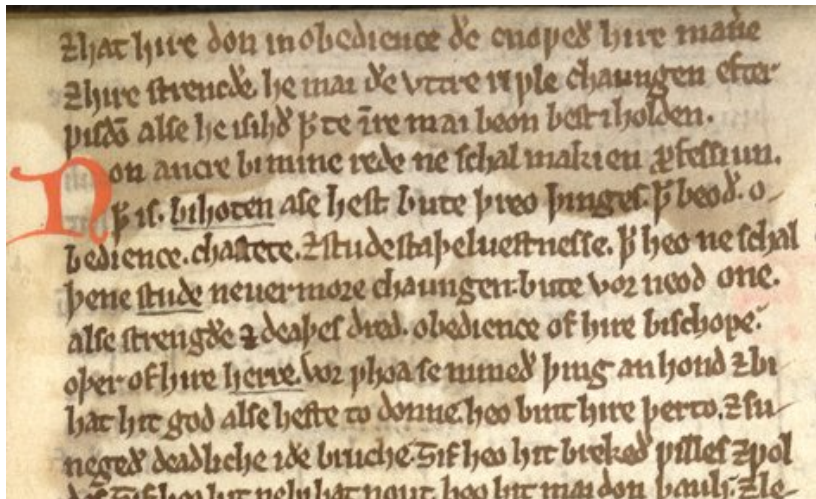 ⁊hat hire don inobedience ðe cnoweð hire maner̄e
⁊hire strencðe. he mai ðe vttre riwle chaungen efter
wisdō alse he isihð ꝥ te īre mai beon best iholden.
Non ancre bi mine rede ne schal makien ꝓfessiun.
ꝥ is. bihoten ase hest. bute þreo þinges. ꝥ beoð. o-
bedience. chastete. ⁊ studestaþeluestnesse. ꝥ heo ne schal
þene stude neuer more chaungen. bute vor neod one.
alse strengðe ⁊ deaþes dred. obedience of hire bischope.
oþer of hire herre. vor hwoa se nimeð þing an hond ⁊ bi-
hat hit god alse heste to donne. heo bint hire þerto. ⁊ su-
negeð deadliche iðe bruche. ȝif heo hit brekeð willes ⁊ wol
des. ȝif heo hit ne bihat nout heo hit mai don þauh. ⁊ le-